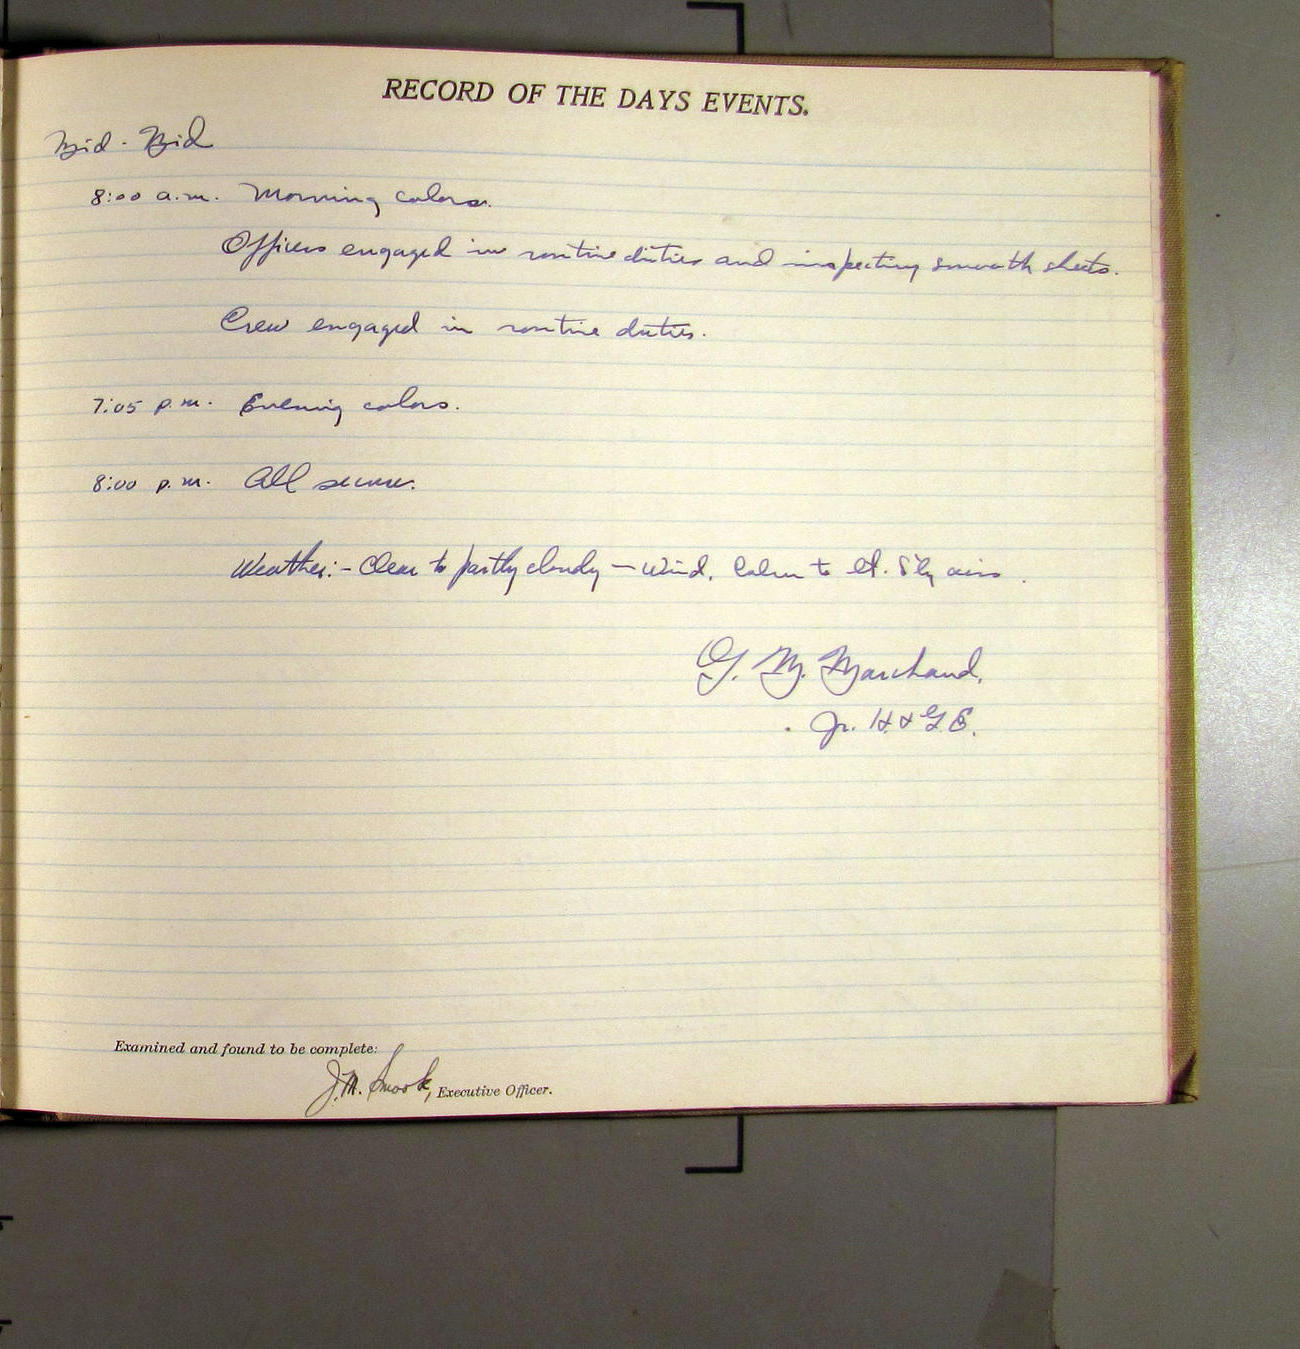 RECORD OF THE DAYS EVENTS.
Mid - Mid
8:00 a.m. Morning colors.
Officers engaged in routine duties and inspecting smooth sheets.
Crew engaged in routine duties.
7:05 p.m. Evening colors.
8:00 p.m. All secure.
Weather:- Clear to partly cloudy - Wind, Calm to lt. S'ly airs.
G. M. Marchand,
Jr. H. & G. E.
Examined and found to be complete:
J. M. Smook, Executive Officer.